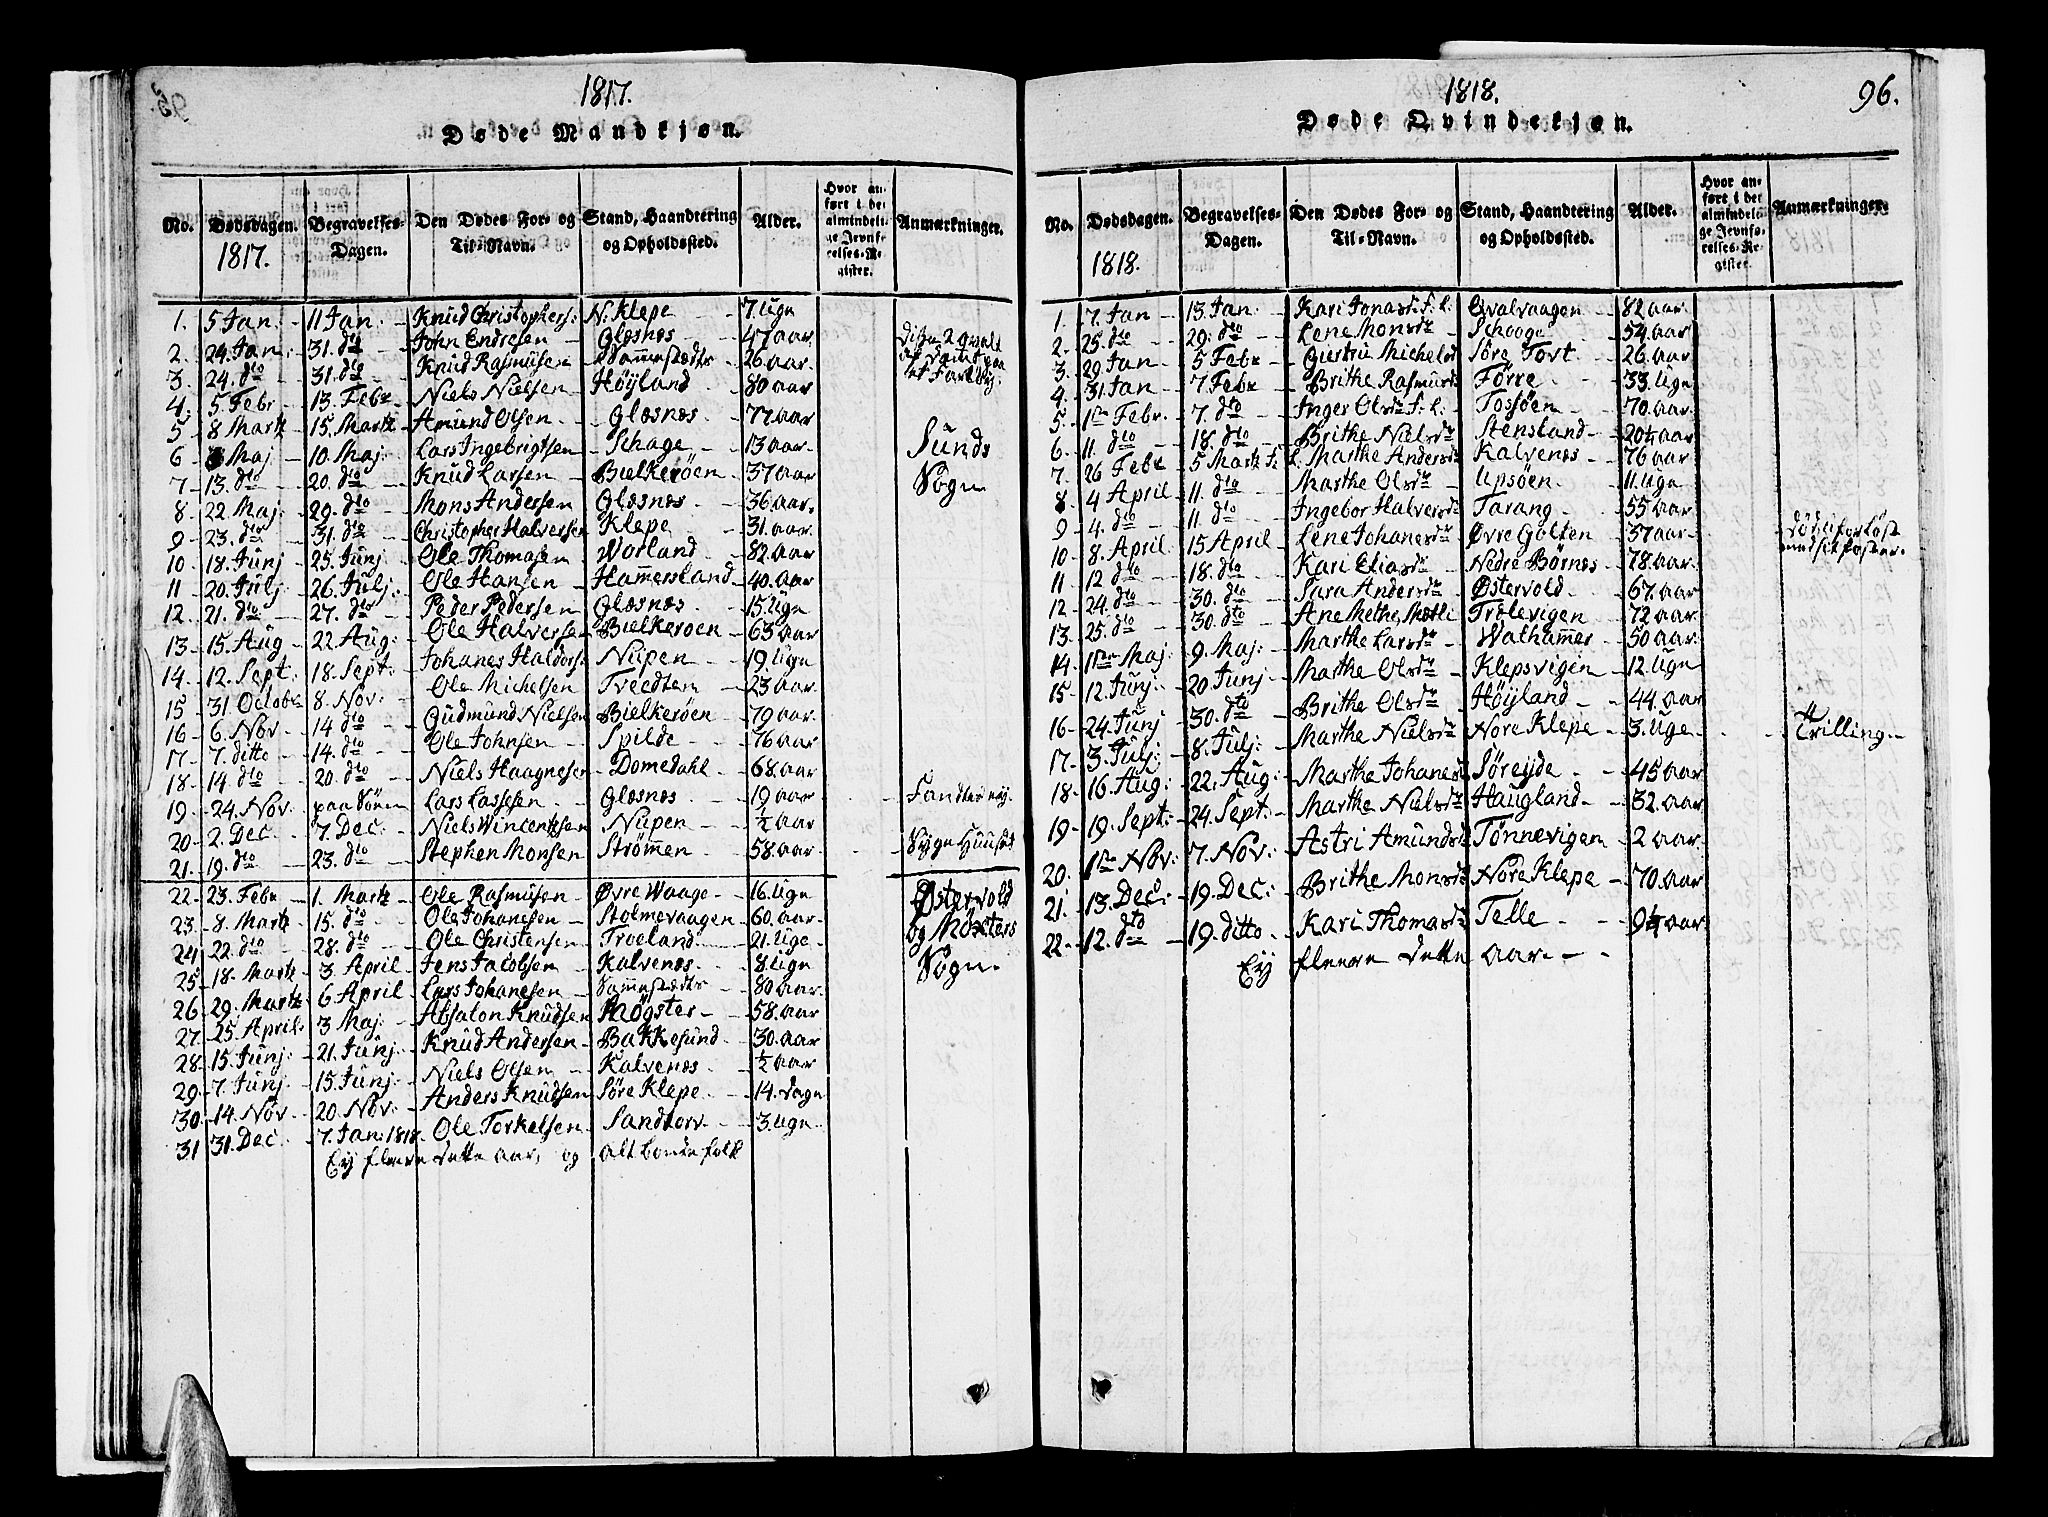 1817.
Døde Mandkjøn.
No.
Dødsdagen.
1817.
Begravelses-
Dagen.
Den Dødes For- og
Til-Navn.
Stand, Haandtering
og Opholdssted.
Alder.
Hvor an-
ført i de
almindeli-
ge Jevnfø-
relses-Re-
gister.
Anmærkninger.
1. 5 Jan. 11 Jan: Knud Christophers: N: Klepe 7 Ugn
2. 24. Jan. 31. dto John Endresen Glesnes 47 aar
3. 24. dto 31. dto Knud Rasmusen 26 aar
4. 5. Febr 13. Febr Niels Nielsen Höyland 80 aar
5 8 Martz 15. Martz Amund Olsen Glesnes 77 aar
6 Maj 10 Maj: Lars Ingebrigtsen Schage 13 aar Sunds
7 13. dto 20. dto Knud Larsen Bielkeröen 37 aar Sogn
8 22 Maj: 29. dto Mons Andersen Glesnes 36 aar.
9 23. dto 31. dto Christopher Halversen Klepe 31. aar
10 18 Junj 25 Junj: Ole Thomasen Worland 82. aar
11 20 Julj 26 Julj: Ole Hansen Hammersland 40. aar
12. 21. dto 27. dto Peder Pedersen Glesnes 15. Ugn
13. 15. Aug 22 Aug: Ole Halversen Bielkeröen 63 aar
14. 12. Sept: 18. Sept: Johanes Haldors: Nupen 19. Ugn
15 31 Octobr 8. Nov: Ole Michelsen Tveedtem 23 aar.
16 6. Nov 14 dto Gudmund Nielsen Bielkeröen 79 aar.
17. 7. ditto 14. dto Ole Johnsen Spilde 76 aar
18 14. dto 20. dto Niels Haagnesen Domedahl 68. aar
19. 24. Nov. paa Søen Lars Lassesen Glesnes 19 aar
20 2. Dec 7. Dec: Niels Wincentzsen Nupen ½ aar
21. 19. dto 23. dto Stephen Monsen Strömen 58. aar
22. 23. Febr 1. Martz Ole Rasmusen Øvre Waage 16. Ugn Østervold
23. 8. Martz 15. dto Ole Johanesen Stolmevaagen 60. aar og Møxters
24 22 dto 28. dto Ole Christensen Troeland 21. Uge
25 18. Martz 3. April Jens Jacobsen Kalvenes 8. Ugn Sogn
26. 29. Martz 6 April Lars Johanesen 80 aar.
27. 25. April 3 Maj: Absalon Knudsen Mögster 58. aar
28. 15. Junj: 21. Junj: Knud Andersen Bakkesund 30. aar
29. 7. Junj. 15. Junj: Niels Olsen Kalvenes ½ aar
30. 14. Nov. 20. Nov: Anders Knudsen Søre Klepe 14. dagn
31 31. Dec. 7. Jan: 1818. Ole Torkelsen Sandtorv 3. Ugn
Ey fleere dette aar, og alt bondefolk
1818.
96.
Døde Qvindekjøn.
No.
Dødsdagen.
1818.
Begravelses-
Dagen.
Den Dødes For- og
Til-Navn.
Stand, Haandtering
og Opholdssted.
Alder.
Hvor an-
ført i det
almindeli-
ge Jevnfø-
relses-Re-
gister.
Anmærkninger.
1. 7. Jan 13. Jan Kari Jonasd: f: l: Qvalvaagen 82 aar.
2. 25. dto 29. dto Lene Monsdr Schooge 54. aar
3. 29. Jan 5 Febr Giertru Michelsd Søre Tovt 26. aar
4. 31. Jan 7. Febr Brithe Rasmusd Förre 33. Ugn
5. 1ste Febr. 7. dto Inger Olsd f: l: Tossöen 70. aar.
6. 11. dto 18. dto Brithe Nielsdr Stensland 20½ aar
7. 26 Febr 5 Martz f: l. Marthe Andersd Kalvenes 76 aar
8 4 April 11. dto Marthe Olsdr Upsöen 11. Ugn
9. 4. dto 11. dto Ingebor Halversd Tarang 55 aar
10 8. April 15 April Lene Johanesdr Øvre Golten 37 aar.
11 12 dto 18. dto Kari Eliasdr Nedre Börnes 78. aar
12 24. dto 30. dto Sara Andersdr Østervold 67. aar
13. 25. dto 30. dto Ane Methe Trolevigen 72 aar
14. 1ste Maj 9. Maj: Marthe Larsdr Walhammer 50 aar.
15 12 Junj: 20 Junj Marthe Olsdr Klepsvigin 12. Ugn
16. 24. Junj 30. dto Brithe Olsdr Höyland 44. aar
17. 3. Julj: 8. Julj: Marthe Nielsdr Nore Klepe 3. Uge Trilling.
18. 16. Aug: 22. Aug: Marthe Johanesd Søreyde 45 aar
19. 19. Sept: 24. Sept: Marthe Nielsdr Haugland 32. aar
20. 1ste Nov: 7. Nov: Astri Amundsd Tönnevigen 2 aar
21. 13. Dec: 19. Dec: Brithe Monsd Nore Klepe 70. aar
22. 12. dto 19. ditto Kari Thomasd Telle 9½ aar
Ey fleere dette aar.